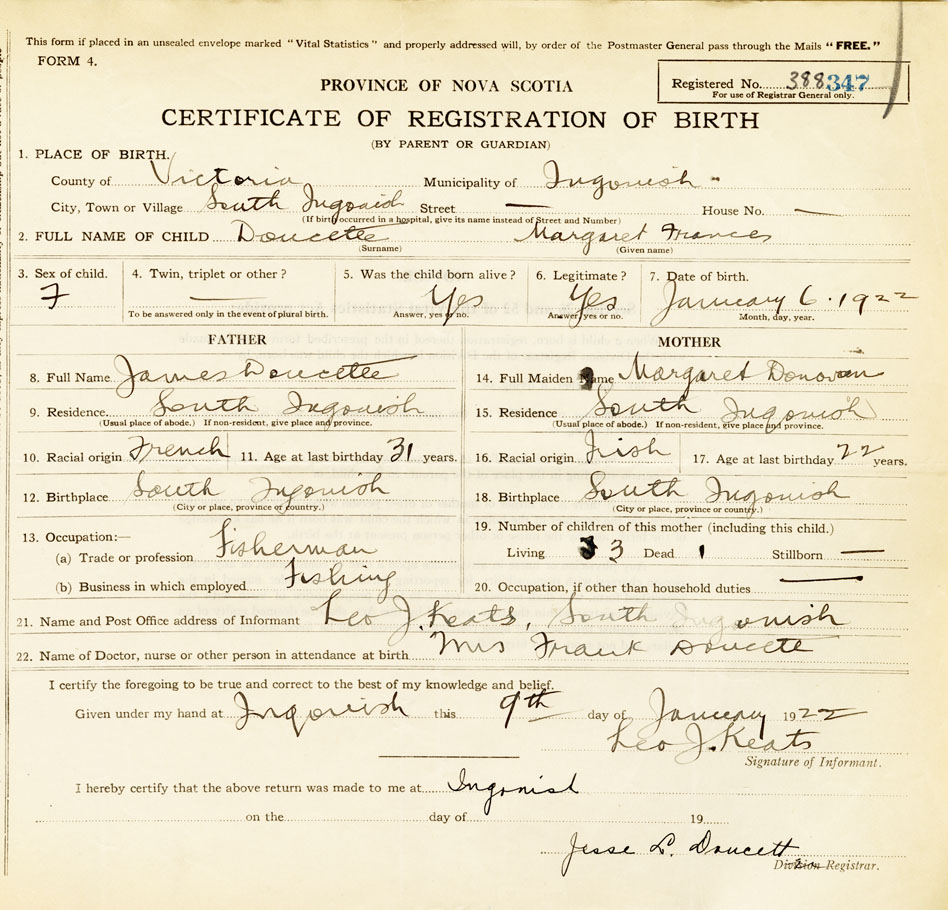 This form if placed in an unsealed envelope marked "Vital Statistics" and properly addressed will, by order of the Postmaster General pass through the Mails "FREE."
FORM 4.
Registered No. 388 347
For use of Registrar General only.
PROVINCE OF NOVA SCOTIA
CERTIFICATE OF REGISTRATION OF BIRTH
(BY PARENT OR GUARDIAN)
1. PLACE OF BIRTH.
County of Victoria Municipality of Ingonish
City, Town or Village South Ingonish Street — House No. —
(If birth occurred in a hospital, give its name instead of Street and Number)
2. FULL NAME OF CHILD Doucette Margaret Frances
(Surname) (Given name)
3. Sex of child. 4. Twin, triplet or other? 5. Was the child born alive? 6. Legitimate? 7. Date of birth.
F — Yes Yes January 6. 1922
To be answered only in the event of plural birth. Answer, yes or no. Answer, yes or no. Month, day, year.
FATHER MOTHER
8. Full Name James Doucette 14. Full Maiden Name Margaret Donovan
9. Residence. South Ingonish 15. Residence South Ingonish
(Usual place of abode.) If non-resident, give place and province. (Usual place of abode.) If non-resident, give place and province.
10. Racial origin French 11. Age at last birthday 31 years. 16. Racial origin Irish 17. Age at last birthday 22 years.
12. Birthplace South Ingonish 18. Birthplace South Ingonish
(City or place, province or country.) (City or place, province or country.)
13. Occupation:— 19. Number of children of this mother (including this child.)
(a) Trade or profession Fisherman Living 3 Dead 1 Stillborn —
(b) Business in which employed Fishing 20. Occupation, if other than household duties —
21. Name and Post Office address of Informant Leo J. Keats, South Ingonish
22. Name of Doctor, nurse or other person in attendance at birth Mrs Frank Doucette
I certify the foregoing to be true and correct to the best of my knowledge and belief.
Given under my hand at Ingonish this 9th day of January 1922
Leo J. Keats
Signature of Informant.
I hereby certify that the above return was made to me at Ingonish
on the day of 19
Jesse L. Doucett
Division Registrar.